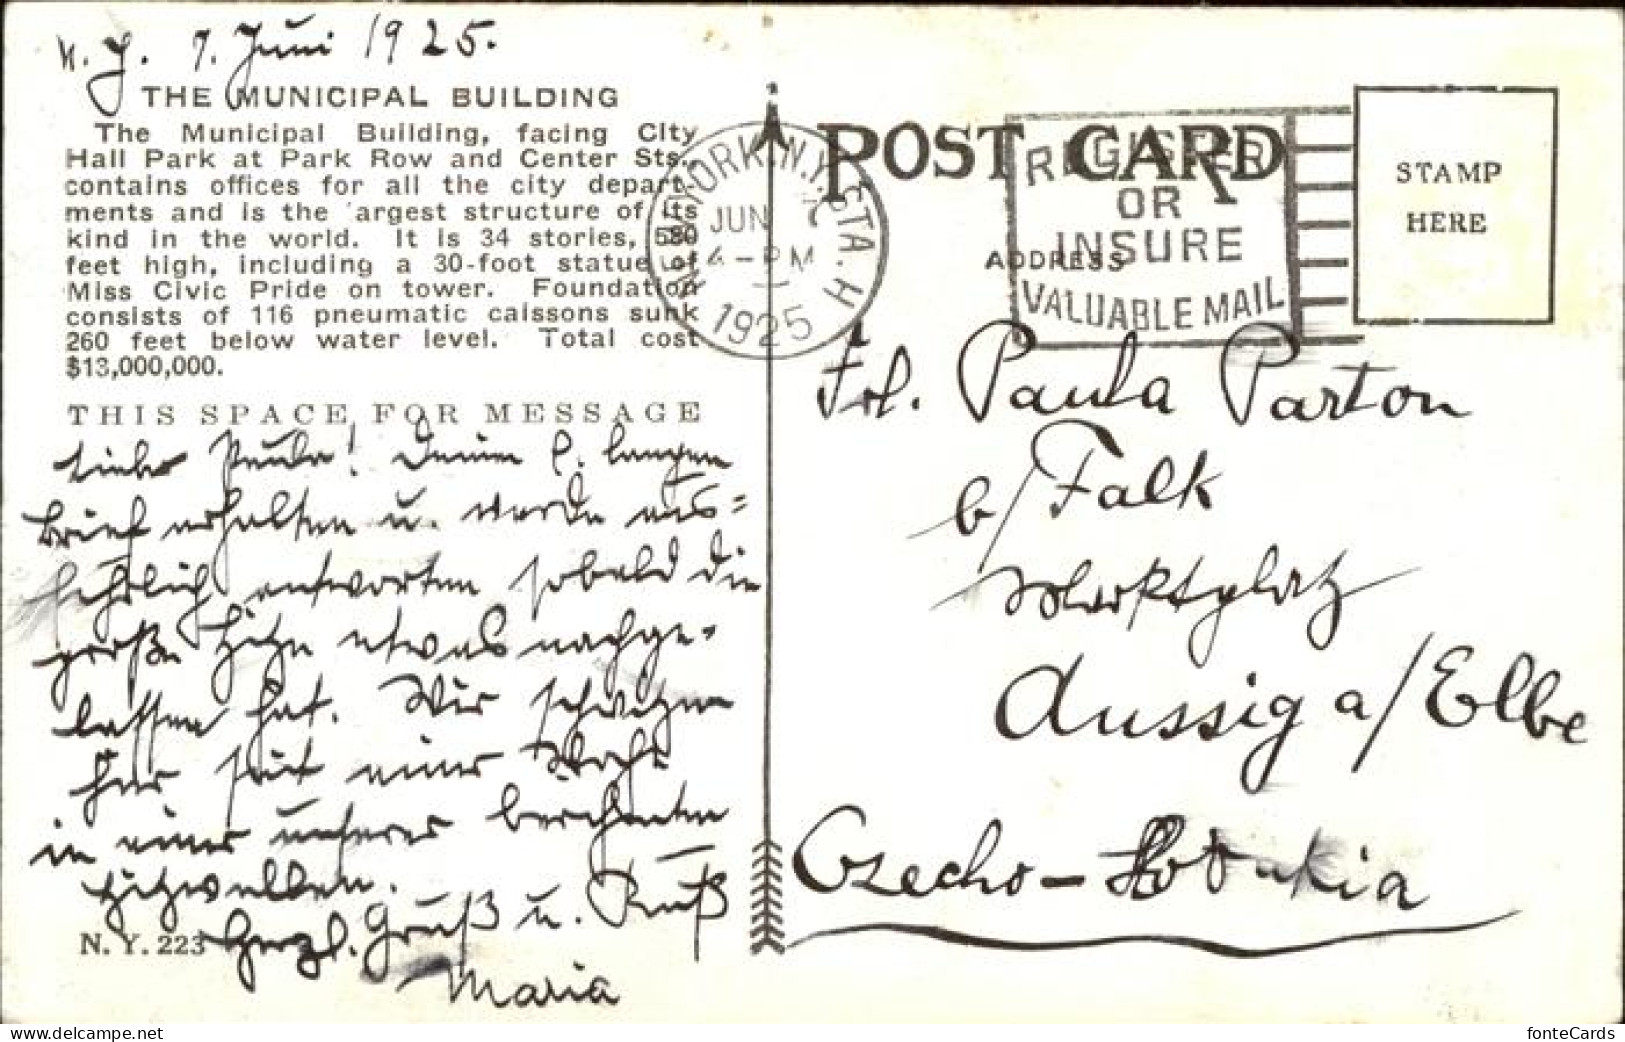 N. Y. 7. Juni 1925.
THE MUNICIPAL BUILDING
The Municipal Building, facing City
Hall Park at Park Row and Center Sts.,
contains offices for all the city depart-
ments and is the largest structure of its
kind in the world. It is 34 stories, 580
feet high, including a 30-foot statue of
Miss Civic Pride on tower. Foundation
consists of 116 pneumatic caissons sunk
260 feet below water level. Total cost
$13,000,000.
THIS SPACE FOR MESSAGE
Liebe Paula! Deinen l. langen
Brief erhalten u. werde aus=
führlich antworten sobald die
große Hitze etwas nachge=
lassen hat. Wir schwitzen
hier seit einer Woche
in einer unserer berühmten
Hitzwellen.
Herzl. Gruß u. Kuß
Maria
N. Y. 223
NEW YORK, N.Y. STA. H
JUN 7
4-PM
1925
POST CARD
REGISTER
OR
INSURE
VALUABLE MAIL
ADDRESS
STAMP
HERE
Frl. Paula Parton
b/ Falk
Marktplatz
Aussig a/Elbe
Czecho-Slovakia
fonteCards
www.delcampe.net